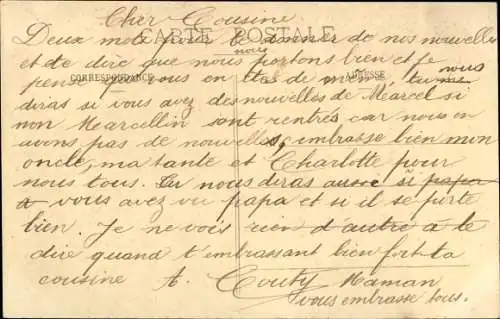 Cher Cousine
CARTE POSTALE
Deux mots pour te donner de nos nouvelles
et de dire que nous nous portons bien et je
CORRESPONDANCE
ADRESSE
pense que vous en êtes de même, tu nous
diras si vous avez des nouvelles de Marcel si
non Marcellin sont rentrés car nous en
avons pas de nouvelles, embrasse bien mon
oncle, ma tante et Charlotte pour
nous tous. Tu nous diras aussi si papa
a vous avez vu papa et si il se porte
bien. Je ne vois rien d'autre à te
dire quand t'embrassant bien fort ta
cousine A. Couty Maman
vous embrasse tous.